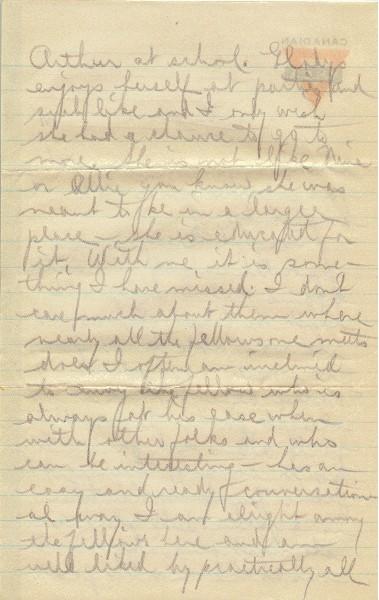 CANADIAN
Arthur at school. Gladys
enjoys herself at parties and
such like and I only wish
she had a chance to go to
more. She is not like
or Ollie you know, she was
meant to be in a larger
place - she is educated for
it. With me it is some-
thing I have missed. I don't
care much about them where
nearly all the fellows one meets
does. I often am inclined
to envy the fellow who is
always at his ease when
with other folks and who
can be interesting - has an
easy and ready conversation-
al way. I am alright among
the fellows here and am
well liked by practically all